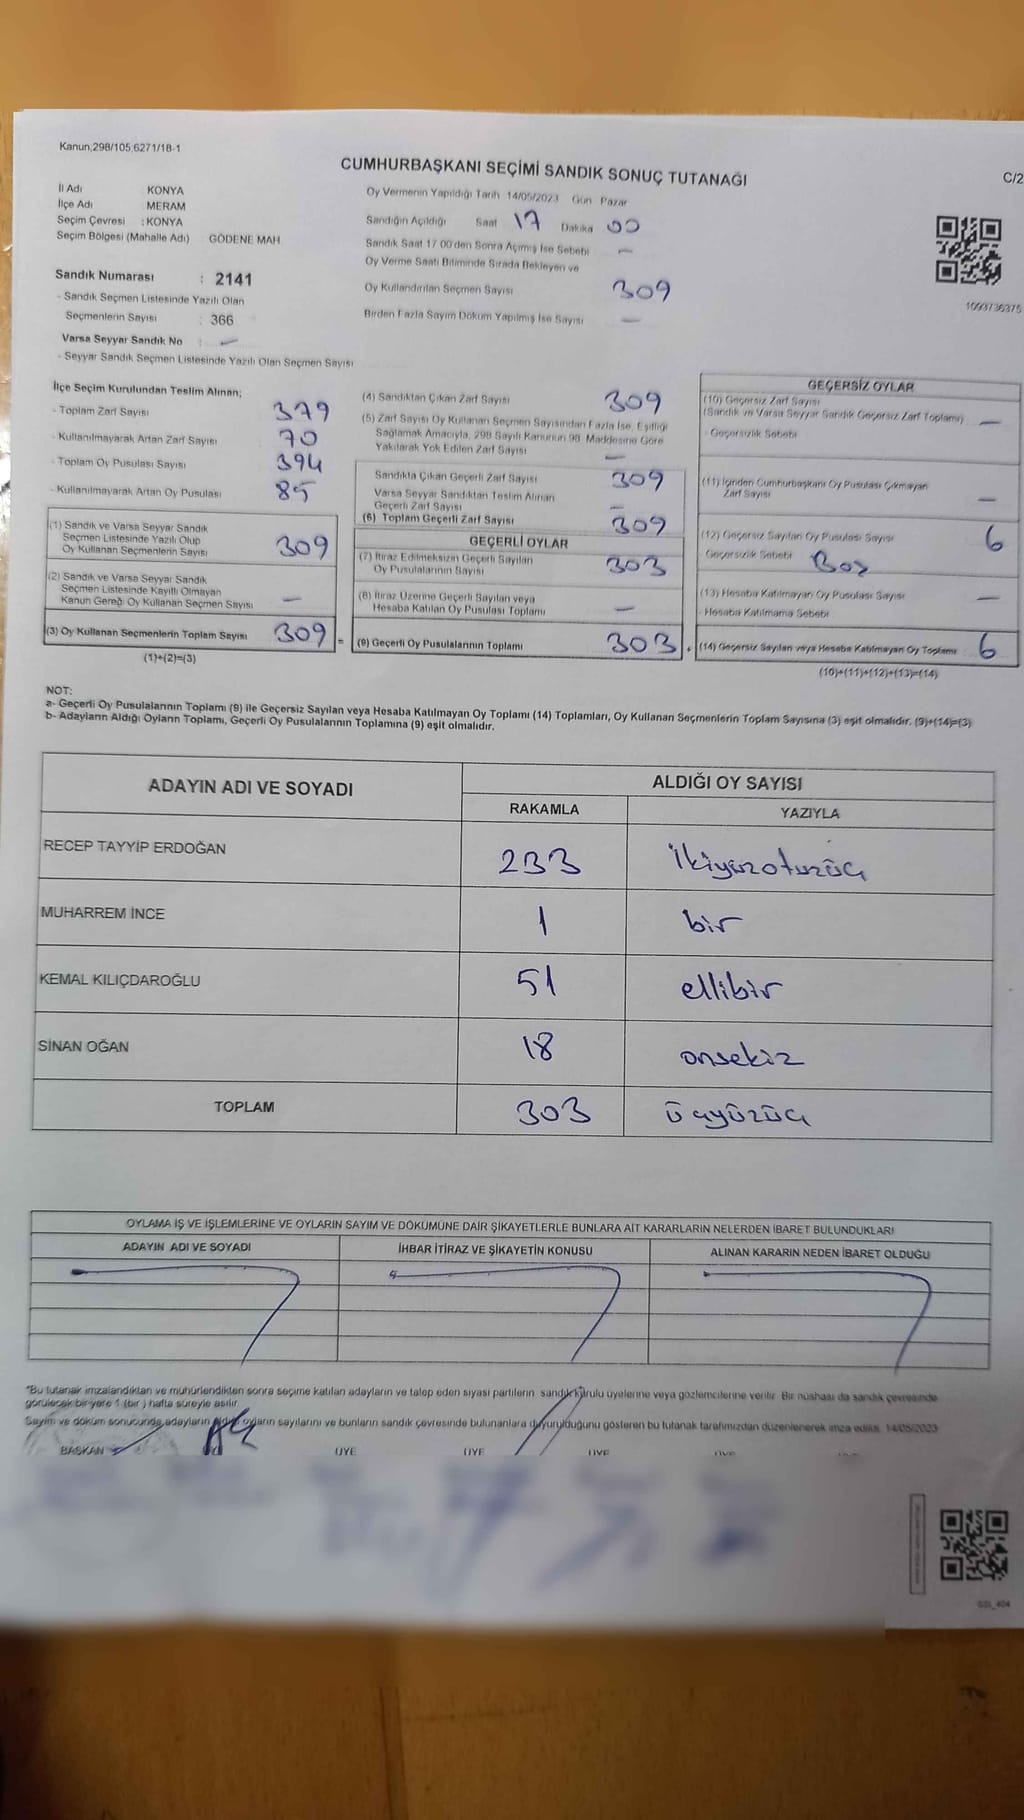 Kanun,298/105,6271/18-1
CUMHURBAŞKANI SEÇİMİ SANDIK SONUÇ TUTANAĞI
C/2
İl Adı KONYA
İlçe Adı MERAM
Seçim Çevresi : KONYA
Seçim Bölgesi (Mahalle Adı) GÖDENE MAH
Oy Vermenin Yapıldığı Tarih 14/05/2023 Gün Pazar
Sandığın Açıldığı Saat 17 Dakika 00
Sandık Saat 17 00'den Sonra Açımış İse Sebebi –
Oy Verme Saati Bitiminde Sırada Bekleyen ve
Oy Kullandırılan Seçmen Sayısı 309
Birden Fazla Sayım Döküm Yapılmış İse Sayısı –
1093736375
Sandık Numarası : 2141
- Sandık Seçmen Listesinde Yazılı Olan
Seçmenlerin Sayısı : 366
Varsa Seyyar Sandık No : –
- Seyyar Sandık Seçmen Listesinde Yazılı Olan Seçmen Sayısı
İlçe Seçim Kurulundan Teslim Alınan;
- Toplam Zarf Sayısı 379
- Kullanılmayarak Artan Zarf Sayısı 70
- Toplam Oy Pusulası Sayısı 394
- Kullanılmayarak Artan Oy Pusulası 85
(1) Sandık ve Varsa Seyyar Sandık
Seçmen Listesinde Yazılı Olup
Oy Kullanan Seçmenlerin Sayısı 309
(2) Sandık ve Varsa Seyyar Sandık
Seçmen Listesinde Kayıtlı Olmayan
Kanun Gereği Oy Kullanan Seçmen Sayısı –
(3) Oy Kullanan Seçmenlerin Toplam Sayısı 309 =
(1)+(2)=(3)
(4) Sandıktan Çıkan Zarf Sayısı 309
(5) Zarf Sayısı Oy Kullanan Seçmen Sayısından Fazla İse, Eşitliği
Sağlamak Amacıyla, 298 Sayılı Kanunun 98. Maddesine Göre
Yakılarak Yok Edilen Zarf Sayısı –
Sandıkta Çıkan Geçerli Zarf Sayısı 309
Varsa Seyyar Sandıktan Teslim Alınan
Geçerli Zarf Sayısı –
(6) Toplam Geçerli Zarf Sayısı 309
GEÇERLİ OYLAR
(7) İtiraz Edilmeksizin Geçerli Sayılan
Oy Pusulalarının Sayısı 303
(8) İtiraz Üzerine Geçerli Sayılan veya
Hesaba Katılan Oy Pusulası Toplamı –
(9) Geçerli Oy Pusulalarının Toplamı 303 +
GEÇERSİZ OYLAR
(10) Geçersiz Zarf Sayısı
(Sandık ve Varsa Seyyar Sandık Geçersiz Zarf Toplamı) –
- Geçersizlik Sebebi
(11) İçinden Cumhurbaşkanı Oy Pusulası Çıkmayan
Zarf Sayısı –
(12) Geçersiz Sayılan Oy Pusulası Sayısı 6
- Geçersizlik Sebebi Boş
(13) Hesaba Katılmayan Oy Pusulası Sayısı –
- Hesaba Katılmama Sebebi
(14) Geçersiz Sayılan veya Hesaba Katılmayan Oy Toplamı 6
(10)+(11)+(12)+(13)=(14)
NOT:
a- Geçerli Oy Pusulalarının Toplamı (9) ile Geçersiz Sayılan veya Hesaba Katılmayan Oy Toplamı (14) Toplamları, Oy Kullanan Seçmenlerin Toplam Sayısına (3) eşit olmalıdır. (9)+(14)=(3)
b- Adayların Aldığı Oyların Toplamı, Geçerli Oy Pusulalarının Toplamına (9) eşit olmalıdır.
ADAYIN ADI VE SOYADI ALDIĞI OY SAYISI
RAKAMLA YAZIYLA
RECEP TAYYİP ERDOĞAN 233 İkiyüzotuzüç
MUHARREM İNCE 1 bir
KEMAL KILIÇDAROĞLU 51 ellibir
SİNAN OĞAN 18 onsekiz
TOPLAM 303 üçyüzüç
OYLAMA İŞ VE İŞLEMLERİNE VE OYLARIN SAYIM VE DÖKÜMÜNE DAİR ŞİKAYETLERLE BUNLARA AİT KARARLARIN NELERDEN İBARET BULUNDUKLARI
ADAYIN ADI VE SOYADI İHBAR İTİRAZ VE ŞİKAYETİN KONUSU ALINAN KARARIN NEDEN İBARET OLDUĞU
*Bu tutanak imzalandıktan ve mühürlendikten sonra seçime katılan adayların ve talep eden siyasi partilerin sandık kurulu üyelerine veya gözlemcilerine verilir. Bir nüshası da sandık çevresinde
görülecek bir yere 1 (bir) hafta süreyle asılır.
Sayım ve döküm sonucunda adayların aldığı oyların sayılarını ve bunların sandık çevresinde bulunanlara duyurulduğunu gösteren bu tutanak tarafımızdan düzenlenerek imza edildi. 14/05/2023
BAŞKAN ÜYE ÜYE ÜYE